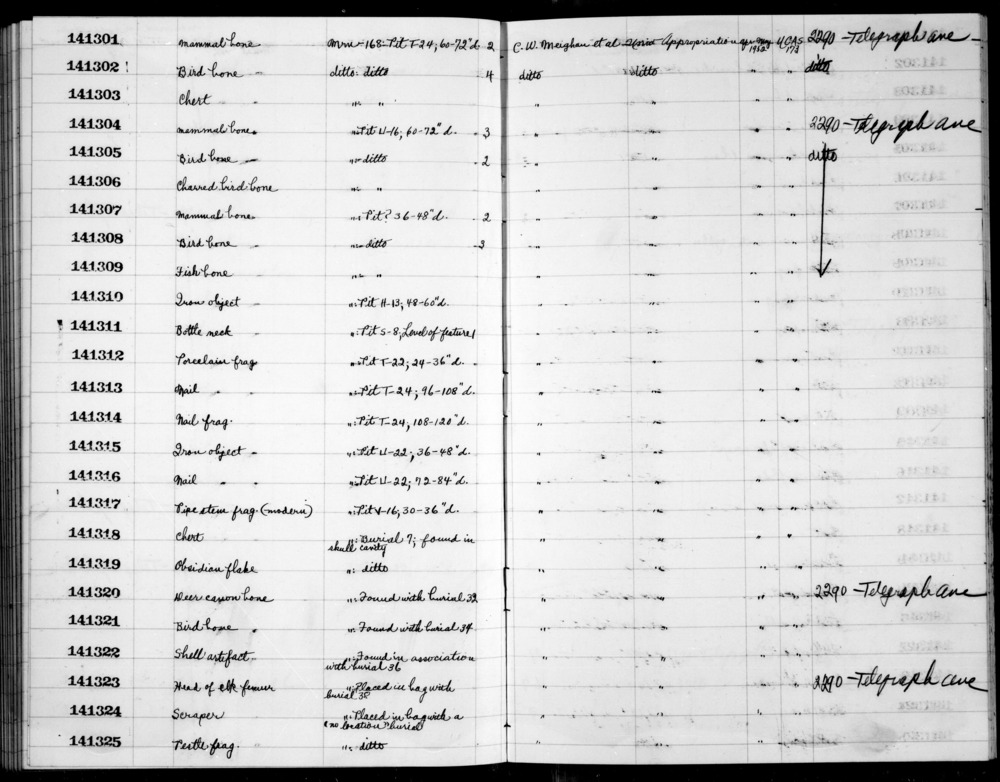 141301 mammal bone Mrn-168-Pit T-24; 60-72"d. 2 C. W. Meighan et al Appropriation 1952 UCAS 173 2290-Telegraph ave
141302 Bird bone ditto: ditto 4 ditto ditto " " ditto
141303 Chert " " " " " "
141304 mammal bone ": Pit U-16; 60-72"d. 3 " " " " 2290-Telegraph ave
141305 Bird bone ": ditto 2 " " " " ditto
141306 Charred bird bone " " " " " "
141307 Mammal bone ": Pit? 36-48"d. 2 " " " "
141308 Bird bone ": ditto 3 " " " "
141309 Fish bone " " " " " "
141310 Iron object ": Pit H-13; 48-60"d. " " " "
141311 Bottle neck ": Pit S-8; Level of feature 1 " " " "
141312 Porcelain frag ": Pit T-22; 24-36"d. " " " "
141313 Nail ": Pit T-24; 96-108"d. " " " "
141314 Nail frag. ": Pit T-24; 108-120"d. " " " "
141315 Iron object ": Pit U-22; 36-48"d. " " " "
141316 Nail ": Pit U-22; 72-84"d. " " " "
141317 Pipe stem frag. (modern) ": Pit V-16; 30-36"d. " " " "
141318 Chert ": Burial 7; found in
skull cavity " " " "
141319 Obsidian flake ": ditto " " " "
141320 Deer canon bone ": Found with burial 32 " " " " 2290-Telegraph ave
141321 Bird bone ": Found with burial 34 " " " "
141322 Shell artefact ": Found in association
with burial 36 " " " "
141323 Head of elk femur ": Placed in bag with
burial 38 " " " " 2290-Telegraph ave
141324 Scraper ": Placed in bag with a
"no location" burial " " " "
141325 Pestle frag. ": ditto " " " "